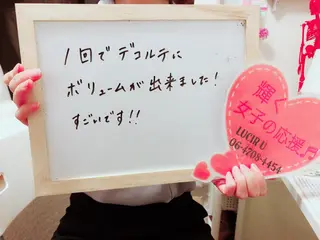 1回でデコルテに
ボリュームが出来ました!
すごいです!!
輝く
女子の応援♬
LUCIR U
06-4708-4454